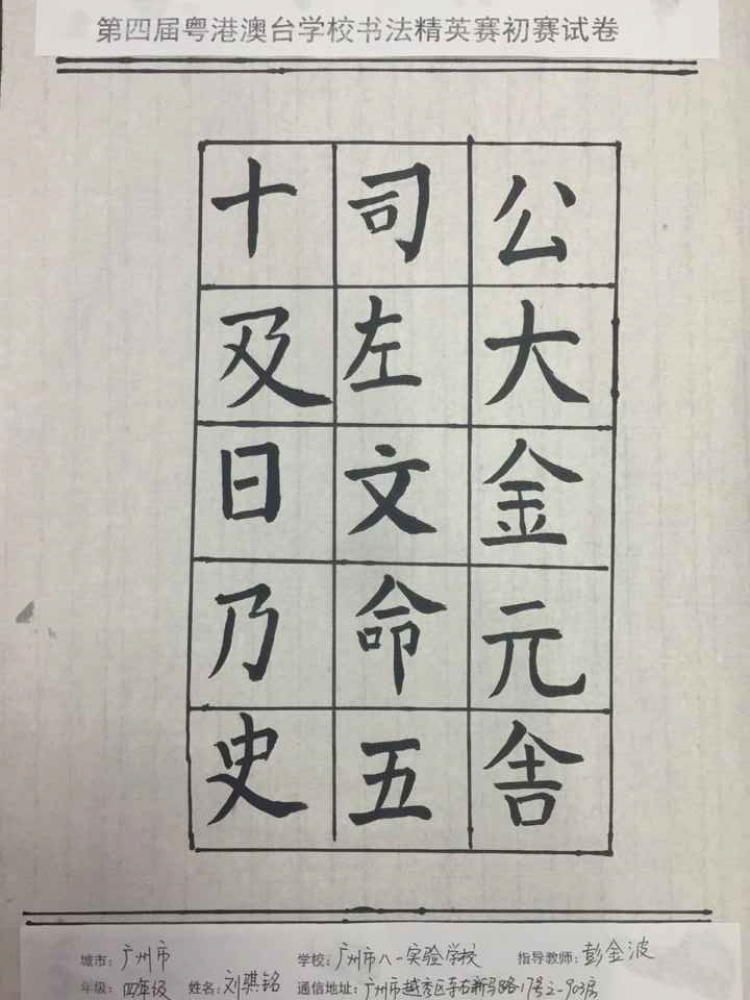 第四届粤港澳台学校书法精英赛初赛试卷
公大金元舍
司左文命五
十及日乃史
城市：广州市 学校：广州市八一实验学校 指导教师：彭金波
年级：四年级 姓名：刘骐铭 通信地址：广州市越秀区寺右新马路17号之一903房